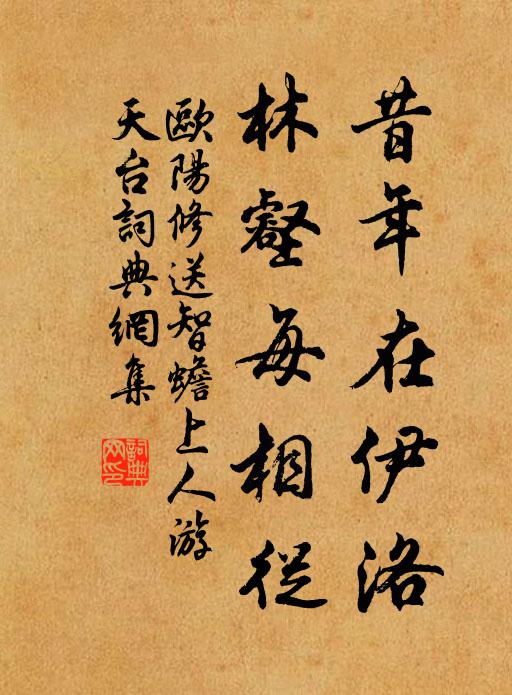 昔年在伊洛
林壑每相從
歐陽修送智蟾上人游
天台詞典網集
詞典
网印